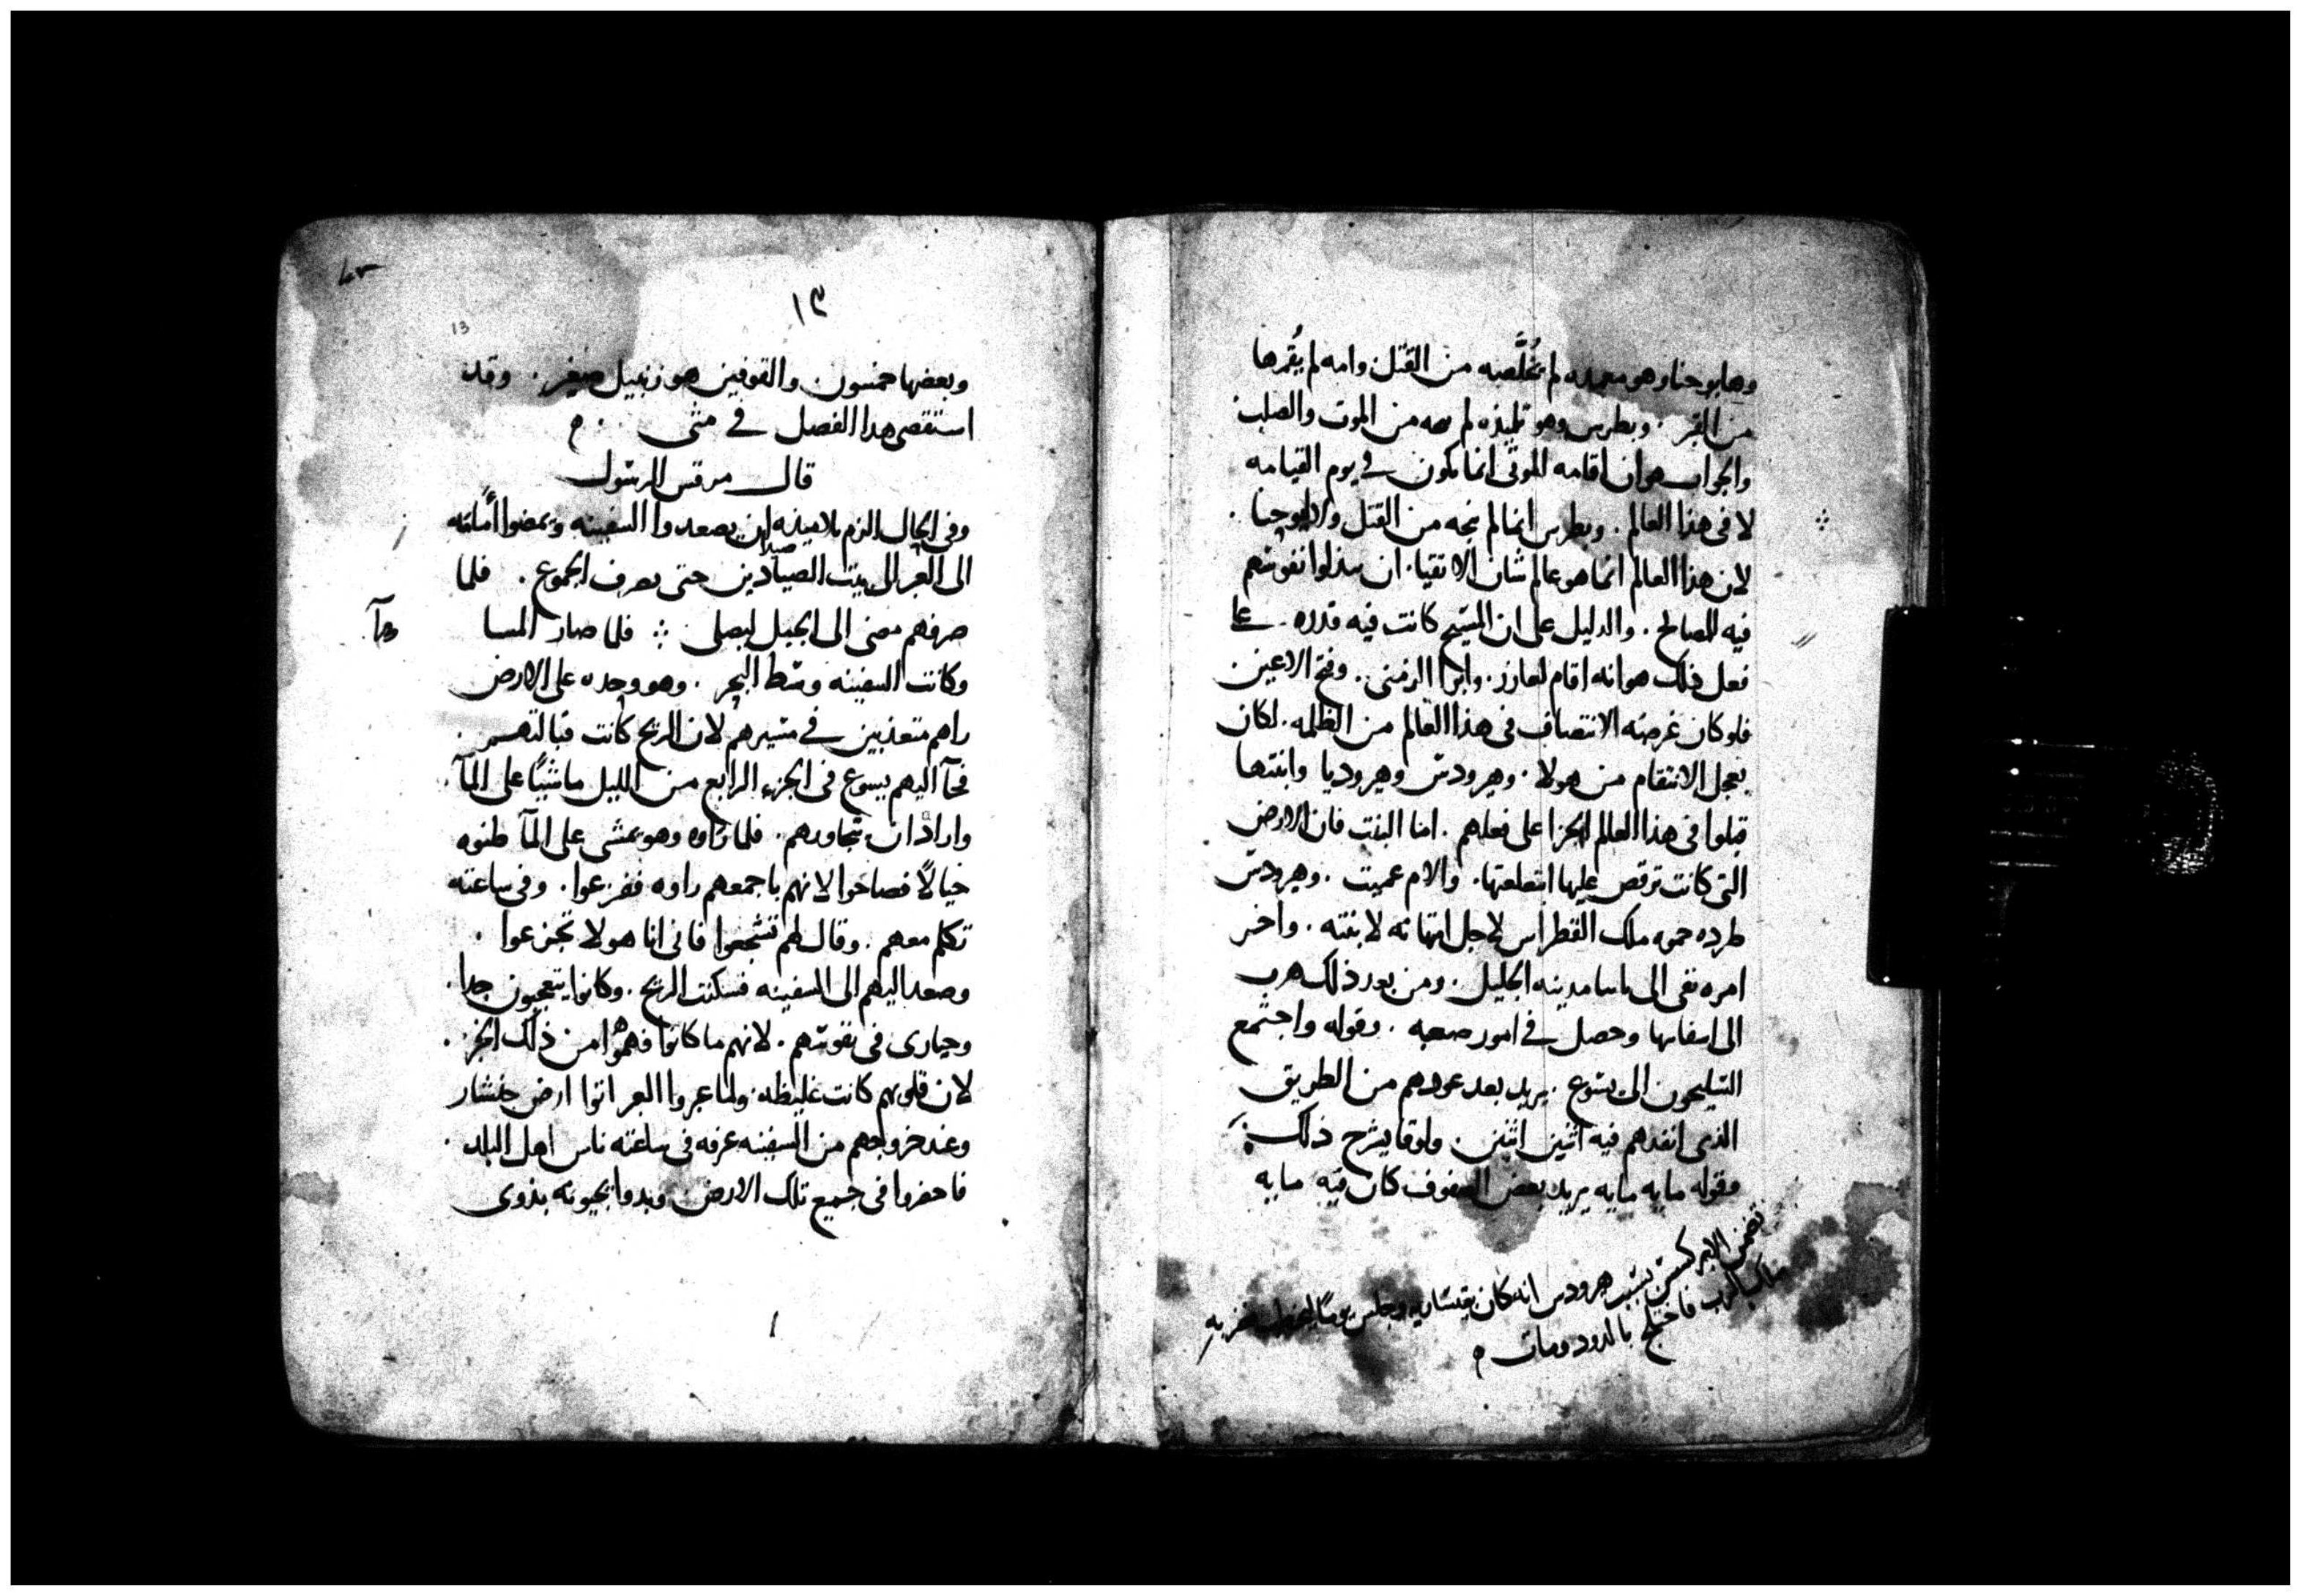 وهابوحنا وهو معمده لم يُخلَّصه من القتل وامه لم يُقمها
من القبر . وبطرس وهو تلميذه لم من الموت والصلب
والجواب هو ان اقامه الموتى انما تكون في يوم القيامه
لا فى هذا العالم . وبطرس انما لم ينجه من القتل ويوحنا .
لان هذا العالم انما هو عالم شان الاتقيا ان يبذلوا نفوسهم
فيه للصالح . والدليل على ان المسيح كانت فيه قدره . على
فعل ذلك هو انه اقام لعازر . وابرا الزمنى . وفتح الاعين
فلو كان غرضه الانتصاف فى هذا العالم من الظلمه . لكان
يعجل الانتقام من هولا . وهيرودس وهيروديا وابنتها
قبلوا فى هذا العالم الجزا على فعلهم . اما البنت فان الارض
التى كانت ترقص عليها ابتلعتها . والام عميت . وهيرودس
طرده حموه ملك القطراس لاجل امتهانه لابنته . واخر
امره نفى الى مدينه الجليل . ومن بعد ذلك هرب
الى اسفانيا وحصل في امور صعبه . وقوله واجتمع
السليحون الى يسوع . يريد بعد عودهم من الطريق
الذى انفدهم فيه اثنين اثنين . ولوقا يشرح ذلك
وقوله مايه مايه يريد بعض الصفوف كان فيه مايه
تضمن الابركسس بسبب هرودس انه كان بقيساريه وجلس يومًا فضربه
ملاك الرب فاختلج بالدود ومات ه
١٣
13
وبعضها خمسون والقوفين هو زنبيل صغير . وقد
استقصى هدا الفصل في متى . ه
قال مرقس الرسول
وفى الحال الزم تلاميذه ان يصعدوا السفينه ويمضوا أمامه
الى العبر الى بيت الصيادين حتى يصرف الجموع . فلما
صرفهم مضى الى الجبل ليصلى فلما صار المسا
وكانت السفينه وسط البحر . وهو وحده على الارض
راهم متعذبين في مسيرهم لان الريح كانت قبالتهم .
فجآ اليهم يسوع فى الجزء الرابع من الليل ماشيًا على المآ .
واراد ان يتجاوزهم . فلما راوه وهو يمشى على المآ ظنوه
خيالًا فصاحوا لانهم باجمعهم راوه ففزعوا . وفى ساعته
تكلم معهم . وقال لهم تشجعوا فانى انا هو لا تجزعوا .
وصعد اليهم الى السفينه فسكنت الريح . وكانوا يتعجبون جدا .
وحيارى فى نفوسهم . لانهم ما كانوا فهموا من ذلك الخبز .
لان قلوبهم كانت غليظه . ولما عبروا العبر اتوا ارض جنشار
وعند خروجهم من السفينه عرفه فى ساعته ناس اهل البلد .
فاحضروا فى جميع تلك الارض وبدوا يجيونه بذوى